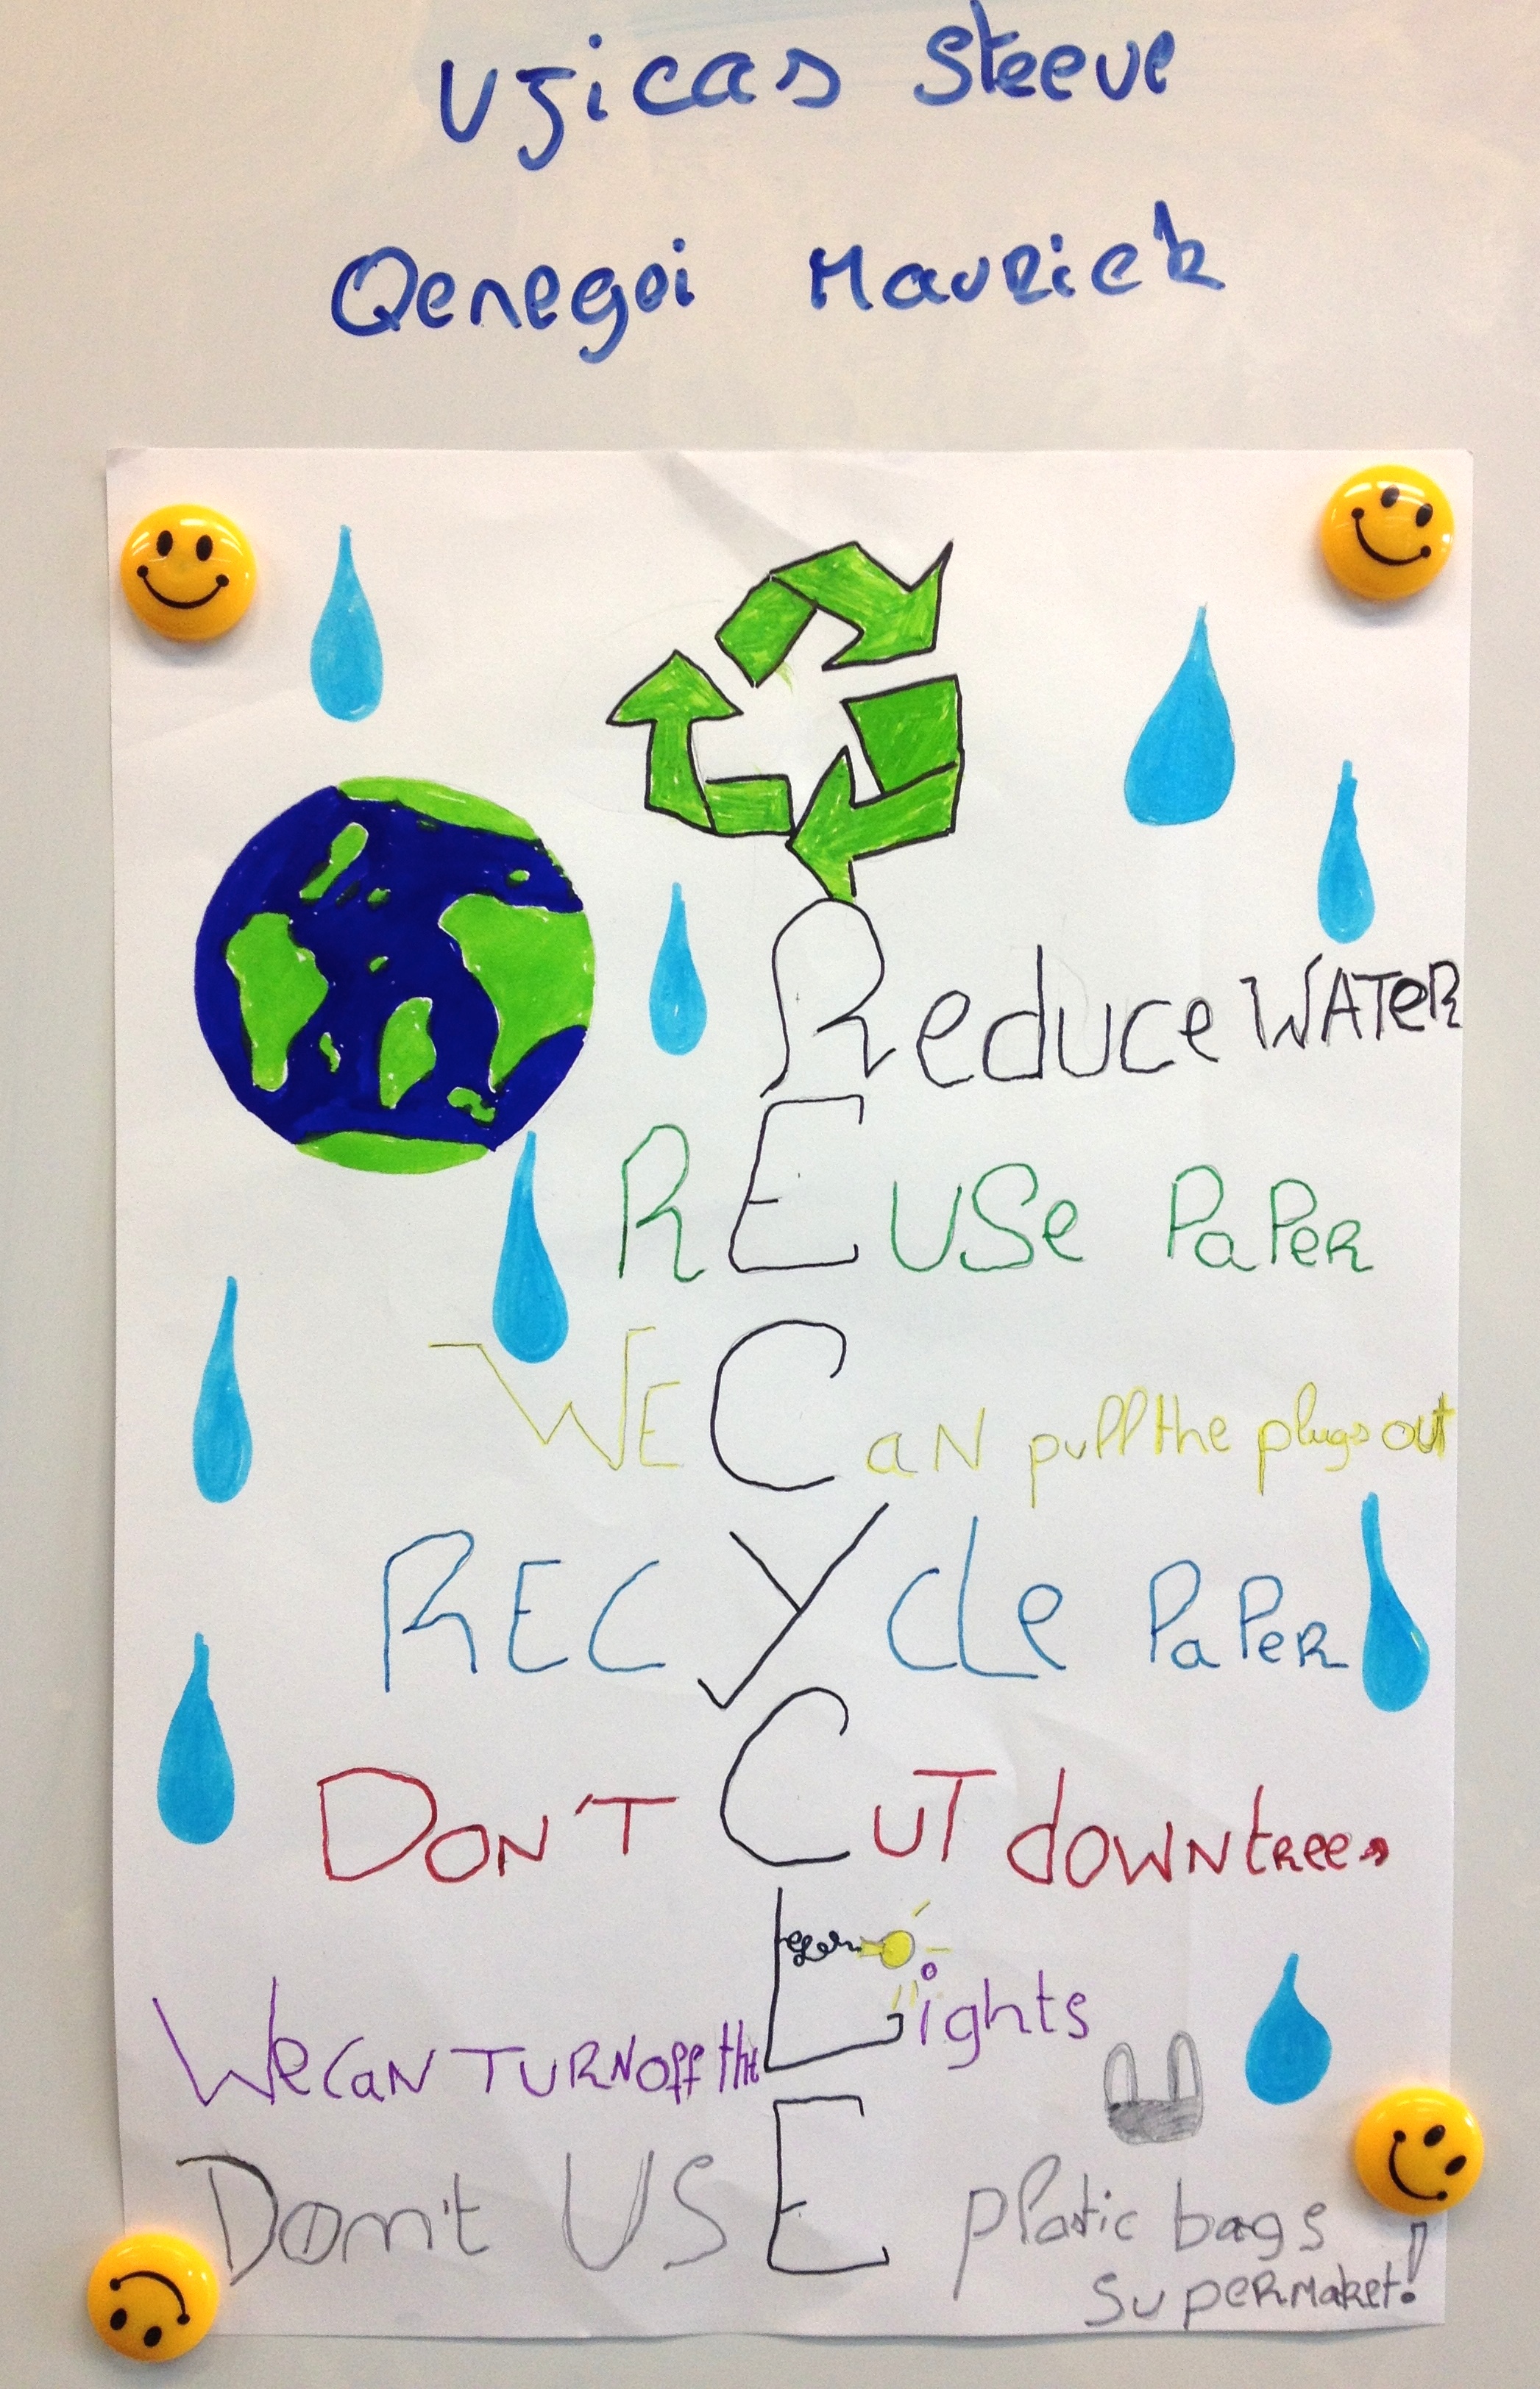 Ujicas Steeve
Qenegei Maurick
Reduce WATeR
REUSe PaPeR
WE CaN pull the plugs out
RECYcLe PaPeR
DON'T CUT dOWN tRees
We CaN TURN Off the Lights
Don't USE plastic bags
SupeRMaket!